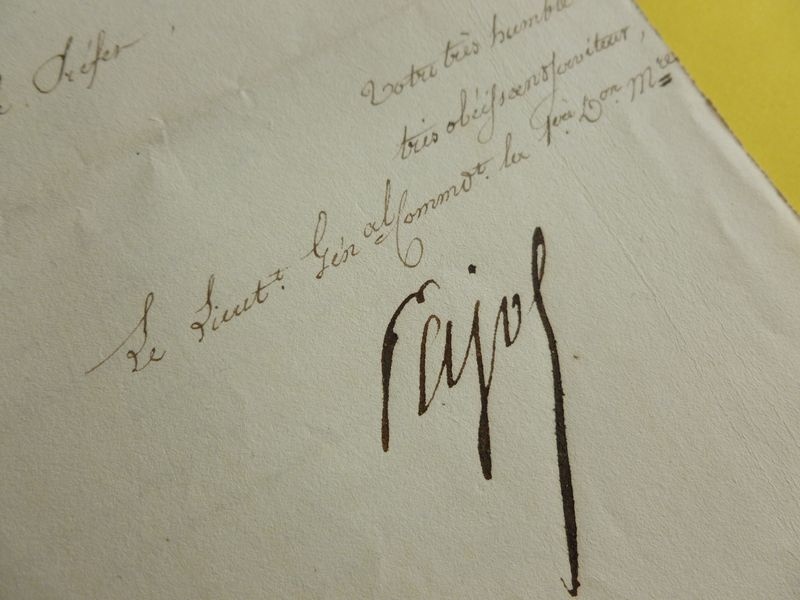 Préfet
Votre très humble
très obéissant serviteur,
Le Lieutt. Génal Commdt. la 1ère Don. Mre
Pajol